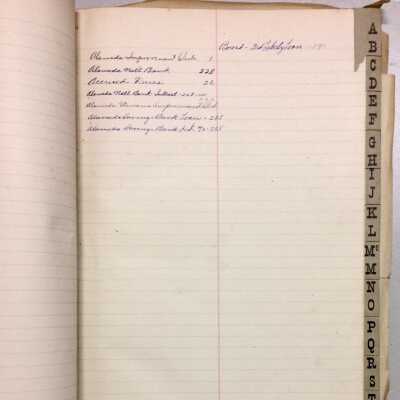 Alameda Improvement Club 1
Alameda Natl Bank 228
Accrued Fines 22
Alameda Natl Bank Interest
Alameda Womans Improvement Club
Alameda Savings Bank Loan - 205
Alameda Savings Bank 205
Loan
A
B
C
D
E
F
G
H
I
J
K
L
Mc
M
N
O
P
Q
R
S
T